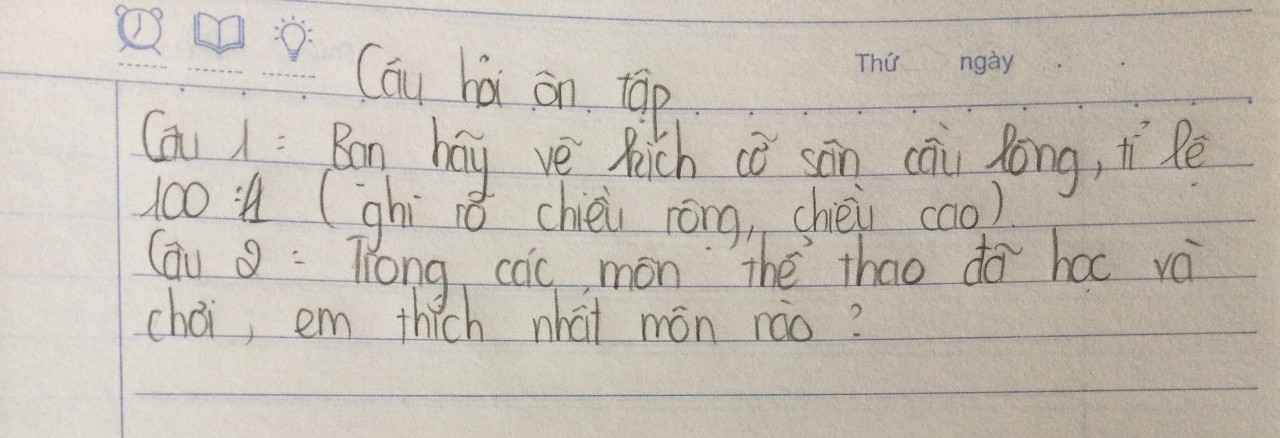 Thứ ngày
Câu hỏi ôn tập
Câu 1: Bạn hãy vẽ kích cỡ sân cầu lông, tỉ lệ
100:1 (ghi rõ chiều rộng, chiều cao)
Câu 2: Trong các môn thể thao đã học và
chơi, em thích nhất môn nào?